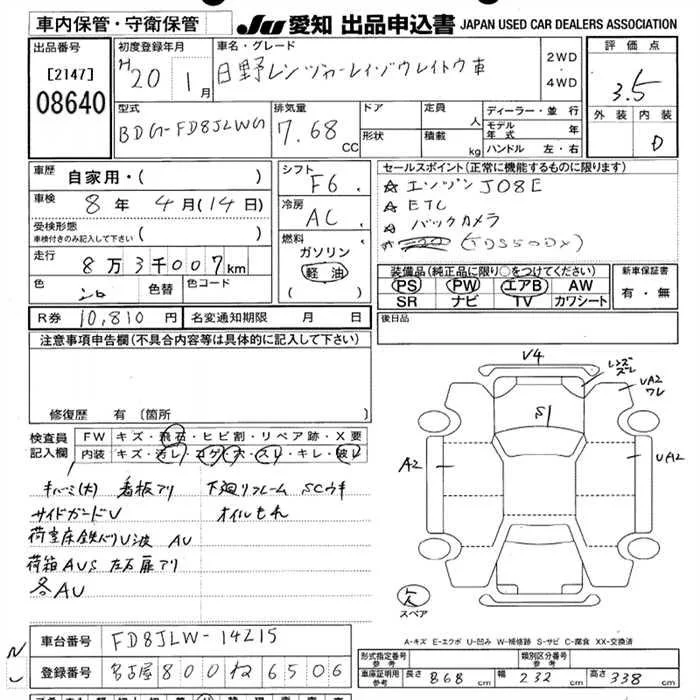 車内保管・守衛保管
JU 愛知 出品申込書 JAPAN USED CAR DEALERS ASSOCIATION
出品番号
[2147]
08640
初度登録年月
H 20 年 1月
車名・グレード
日野レンジャーレイ・ゾウレイトウ車
2WD
・
4WD
評価点
3.5
外装 内装
D
型式
BDG-FD8JLWG
排気量
7.68 CC
ドア
形状
定員 人
積載 kg
ディーラー・並行
モデル年式 年
ハンドル 左・右
車歴 自家用・( )
車検 8年 4月(14日)
受検形態
車検付きのみ記入して下さい ( )
走行 8万3千007km
色 シロ 色替 色コード
シフト F6
冷房 AC
燃料
ガソリン
軽油
( )
セールスポイント(正常に機能するものに限ります)
☆エンジンJ08E
☆ETC
☆バックカメラ
(TDS50DX)
装備品(純正品に限り○をつけてください)
PS PW エアB AW
SR ナビ TV カワシート
新車保証書
有・無
R券 10,810円 名変通知期限 月 日
後日品
注意事項申告欄(不具合内容等は具体的に記入して下さい)
修復歴 有(箇所
検査員記入欄
FW キズ・飛石・ヒビ割・リペア跡・X要
内装 キズ・汚レ・コゲ・穴・スレ・キレ・破レ
キバミ(大) 看板アリ 下廻リフレーム SCウキ
サイドガードU オイルもれ
荷室床鉄バリU波 AU
荷箱AUS 左右扉アリ
各AU
V4
レンズズレ
UA2
ワレ
S1
A2
UA2
欠
スペア
A-キズ E-エクボ U-凹み W-補修跡 S-サビ C-腐食 XX-交換済
車台番号 FD8JLW-14215
登録番号 名古屋800ね6506
形式指定番号
参考
類別区分番号
参考
車庫証明用
参考
長さ 868 cm 幅 232 cm 高さ 338 cm